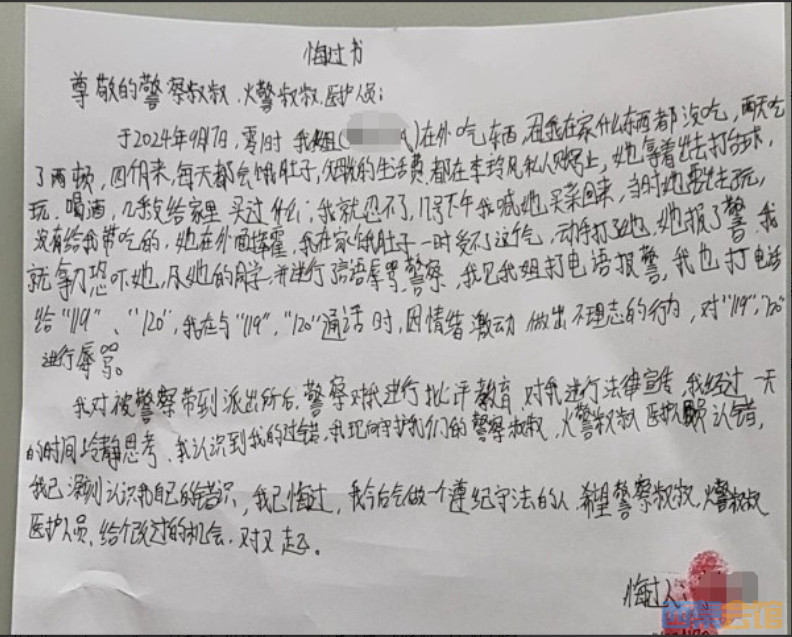 悔过书
尊敬的警察叔叔、火警叔叔、医护人员:
于2024年9月7日,零1时 我姐( )在外吃东西,且我在家什么东西都没吃,两天吃
了两顿,四个月来,每天都会饿肚子,父母的生活费,都在李玲凤私人账号上,她拿着出去打台球,
玩、喝酒,几乎没给家里买过什么;我就忍不了,几号下午我喊她买菜回来,当时她要出去玩,
没有给我带吃的,她在外面挥霍,我在家饿肚子一时受不了这个气,动手打了她,她报了警,我
就拿刀恐吓她,及她的同学,并进行了言语辱骂警察,我见我姐打电话报警,我也打电话
给"119"、"120",我在与"119","120"通话时,因情绪激动 做出不理志的行为,对"119","120"
进行辱骂。
我对被警察带到派出所后,警察对我进行批评教育,对我进行法律宣传,我经过一天
的时间冷静思考,我认识到我的过错,我现向守护我们的警察叔叔,火警叔叔 医护人员 认错,
我已深刻认识我自己的错识,我已悔过,我今后会做一个遵纪守法的人,希望警察叔叔,火警叔叔
医护人员,给个改过的机会,对不起。
悔过人:
西京会馆